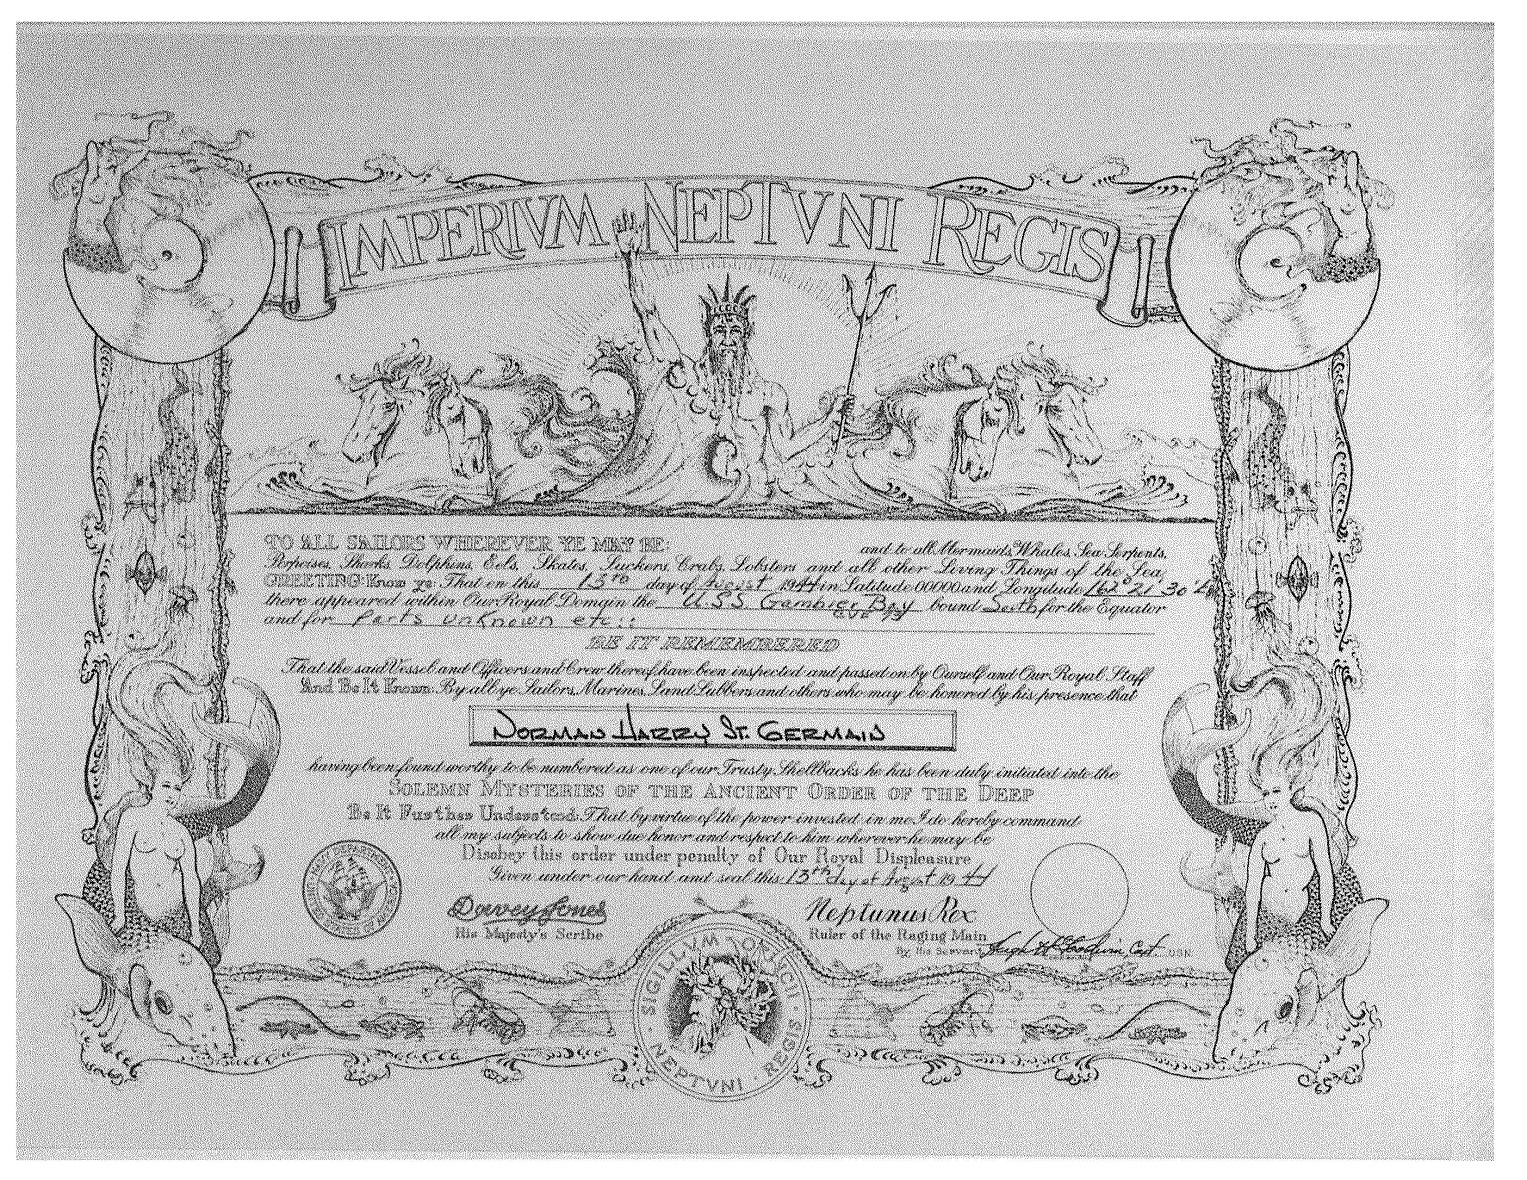 IMPERIVM NEPTVNI REGIS
TO ALL SAILORS WHEREVER YE MAY BE: and to all Mermaids, Whales, Sea Serpents,
Porpoises, Sharks, Dolphins, Eels, Skates, Suckers, Crabs, Lobsters and all other Living Things of the Sea,
GREETING: Know ye: That on this 13th day of August 1944 in Latitude 00000 and Longitude 162° 21' 30"
there appeared within Our Royal Domain the U.S.S Gambier Bay bound South for the Equator
CVE 73
and for Parts unknown etc::
BE IT REMEMBERED
That the said Vessel and Officers and Crew thereof have been inspected and passed on by Ourself and Our Royal Staff
And Be It Known: By all ye Sailors, Marines, Land Lubbers and others who may be honored by his presence that
NORMAN HARRY ST. GERMAIN
having been found worthy to be numbered as one of our Trusty Shellbacks he has been duly initiated into the
SOLEMN MYSTERIES OF THE ANCIENT ORDER OF THE DEEP
Be It Further Understood: That by virtue of the power invested in me I do hereby command
all my subjects to show due honor and respect to him wherever he may be
Disobey this order under penalty of Our Royal Displeasure
Given under our hand and seal this 13th day of August 1944
Davey Jones
His Majesty's Scribe
Neptunus Rex
Ruler of the Raging Main
By His Servant Hugh H. Goodwin Capt. USN
NAVY DEPARTMENT
SIGILLVM
NEPTVNI · REGIS